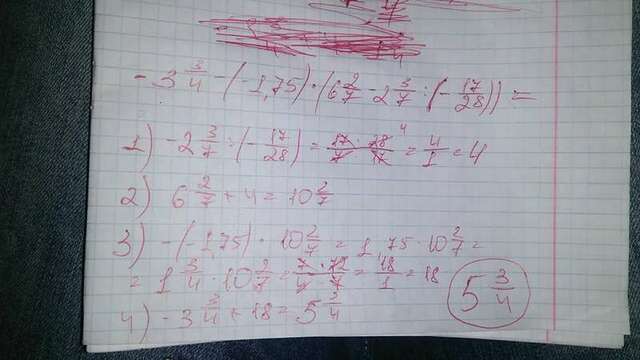 - 3 3/4 - (-1,75) · (6 2/7 - 2 3/7 : (- 17/28)) =
1) - 2 3/7 : (- 17/28) = 17/7 · 28/17 4 = 4/1 = 4
2) 6 2/7 + 4 = 10 2/7
3) - (-1,75) · 10 2/7 = 1,75 · 10 2/7 =
= 1 3/4 · 10 2/7 = 7/4 · 72/7 = 18/1 = 18
4) - 3 3/4 + 18 = 5 3/4
5 3/4